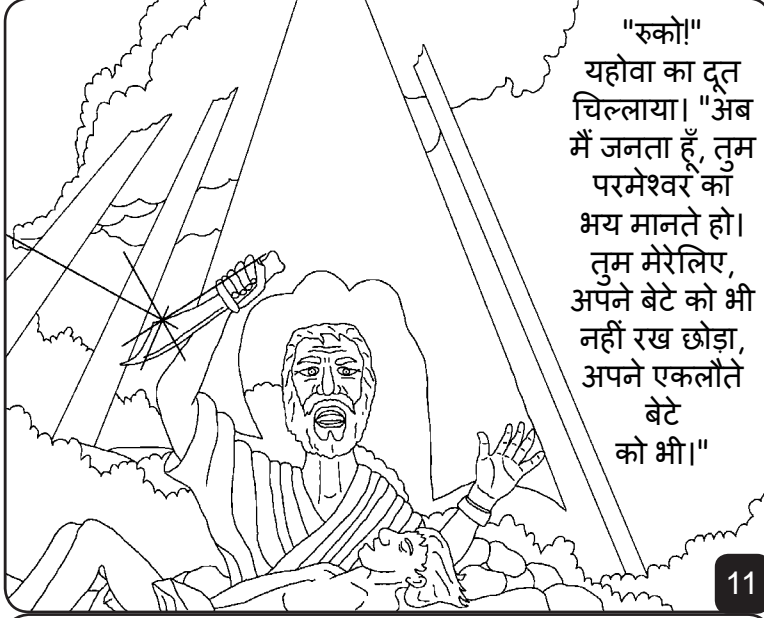 "रुको!"
यहोवा का दूत
चिल्लाया। "अब
मैं जनता हूँ, तुम
परमेश्वर का
भय मानते हो।
तुम मेरेलिए,
अपने बेटे को भी
नहीं रख छोड़ा,
अपने एकलौते
बेटे
को भी।"
11